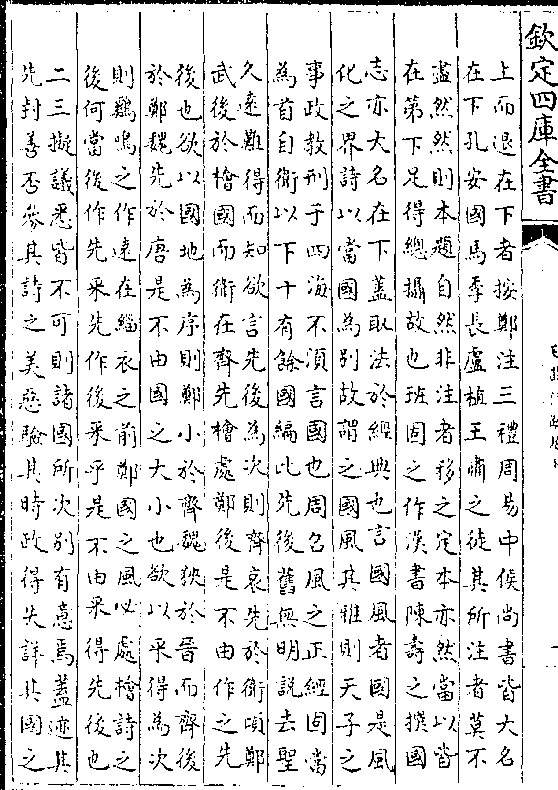 欽定四庫全書
上而退在下者按鄭注三禮周易中候尚書皆大名
在下孔安國馬季長盧植王肅之徒其所注者莫不
盡然然則本題自然非注者移之定本亦然當以皆
在第下足得總攝故也班固之作漢書陳壽之撰國
志亦大名在下蓋取法於經典也言國風者國是風
化之界詩以當國為别故謂之國風其雅則天子之
事政教刑于四海不須言國也周召風之正經固當
為首自衛以下十有餘國編比先後舊無明說去聖
久逺難得而知欲言先後為次則齊哀先於衛頃鄭
武後於檜國而衛在齊先檜處鄭後是不由作之先
後也欲以國地為序則鄭小於齊魏狹於晉而齊後
於鄭魏先於唐是不由國之大小也欲以采得為次
則雞鳴之作逺在緇衣之前鄭國之風必處檜詩之
後何當後作先采先作後采乎是不由采得先後也
二三擬議悉皆不可則諸國所次别有意焉蓋迹其
先封善否參其詩之美惡驗其時政得失詳其國之